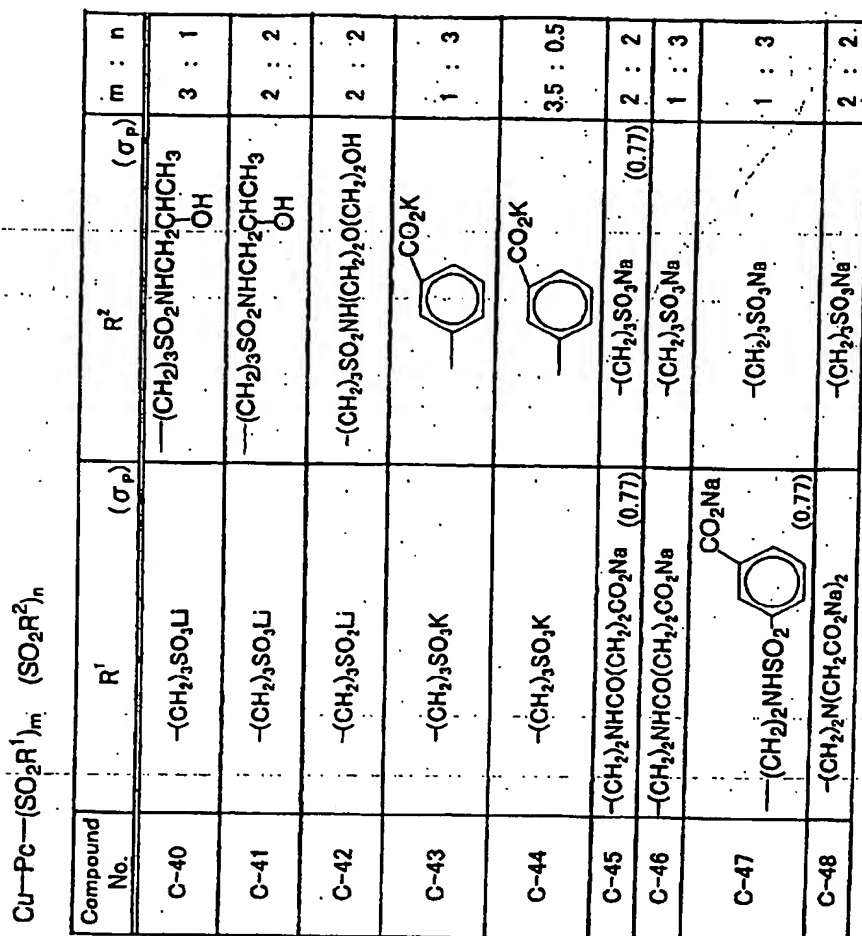 Cu—Pc—(SO₂R¹)m (SO₂R²)n
Compound No. R¹ (σp) R² (σp) m : n
C-40 -(CH₂)₃SO₃Li —(CH₂)₃SO₂NHCH₂CHCH₃ 3 : 1
OH
C-41 -(CH₂)₃SO₃Li —(CH₂)₃SO₂NHCH₂CHCH₃ 2 : 2
OH
C-42 -(CH₂)₃SO₂Li -(CH₂)₃SO₂NH(CH₂)₂O(CH₂)₂OH 2 : 2
C-43 -(CH₂)₃SO₃K CO₂K 1 : 3
C-44 -(CH₂)₃SO₃K CO₂K 3.5 : 0.5
C-45 -(CH₂)₂NHCO(CH₂)₂CO₂Na (0.77) -(CH₂)₃SO₃Na (0.77) 2 : 2
C-46 -(CH₂)₂NHCO(CH₂)₂CO₂Na -(CH₂)₃SO₃Na 1 : 3
C-47 —(CH₂)₂NHSO₂ CO₂Na (0.77) -(CH₂)₃SO₃Na 1 : 3
C-48 -(CH₂)₂N(CH₂CO₂Na)₂ -(CH₂)₃SO₃Na 2 : 2